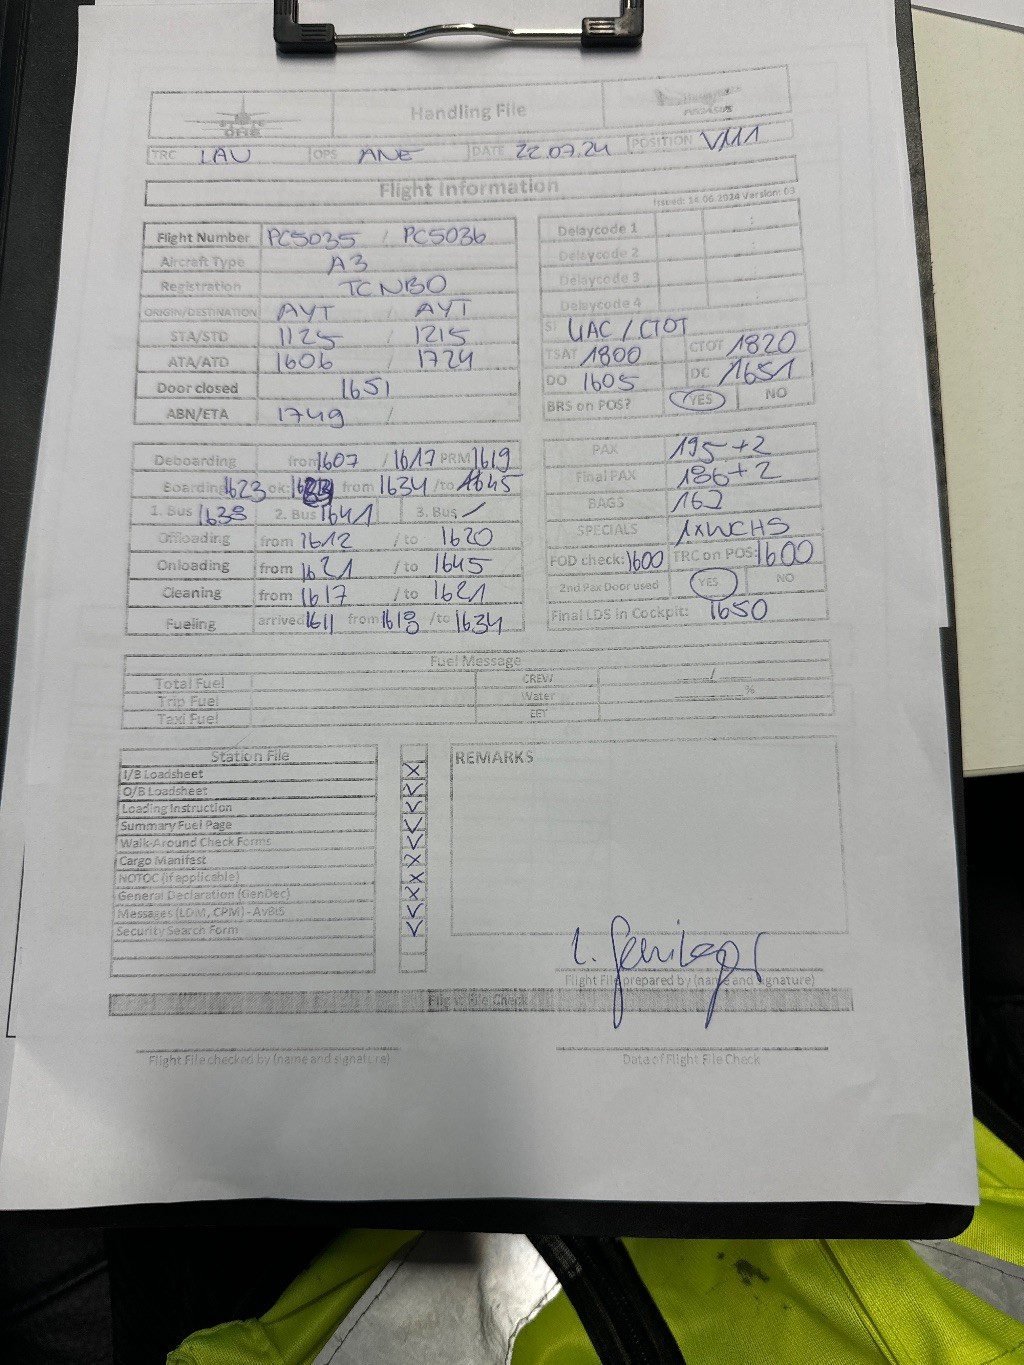 Handling File
PEGASUS
TRC LAU OPS ANE DATE 22.07.24 POSITION VM1
Flight Information
Issued: 14.06.2024 Version: 03
Flight Number PC5035 / PC5036
Aircraft Type A3
Registration TCNBO
ORIGIN/DESTINATION AYT / AYT
STA/STD 1125 / 1215
ATA/ATD 1606 / 1724
Door closed 1651
ABN/ETA 1749 /
Delaycode 1 :
Delaycode 2
Delaycode 3
Delaycode 4 :
SI UAC / CTOT
TSAT 1800 CTOT 1820
DO 1605 DC 1651
BRS on POS? YES NO
Deboarding from 1607 / 1617 PRM 1619
Boarding 1623 ok: from 1634 / to 1645
1. Bus 1638 2. Bus 1641 3. Bus /
Offloading from 1612 / to 1620
Onloading from 1621 / to 1645
Cleaning from 1617 / to 1621
Fueling arrived 1611 from 1618 / to 1634
PAX 195+2
Final PAX 186+2
BAGS
SPECIALS 1xWCHS
FOD check: 1600 TRC on POS: 1600
2nd Pax Door used YES NO
Final LDS in Cockpit: 1650
Fuel Message
Total Fuel CREW /
Trip Fuel Water %
Taxi Fuel EET
Station File
I/B Loadsheet X
O/B Loadsheet V
Loading Instruction V
Summary Fuel Page V
Walk-Around Check Forms V
Cargo Manifest X
NOTOC (if applicable) X
General Declaration (GenDec) X
Messages (LDM, CPM) - AvBIS V
Security Search Form V
REMARKS
Flight File prepared by (name and signature)
Flight File Check
Flight File checked by (name and signature)
Date of Flight File Check